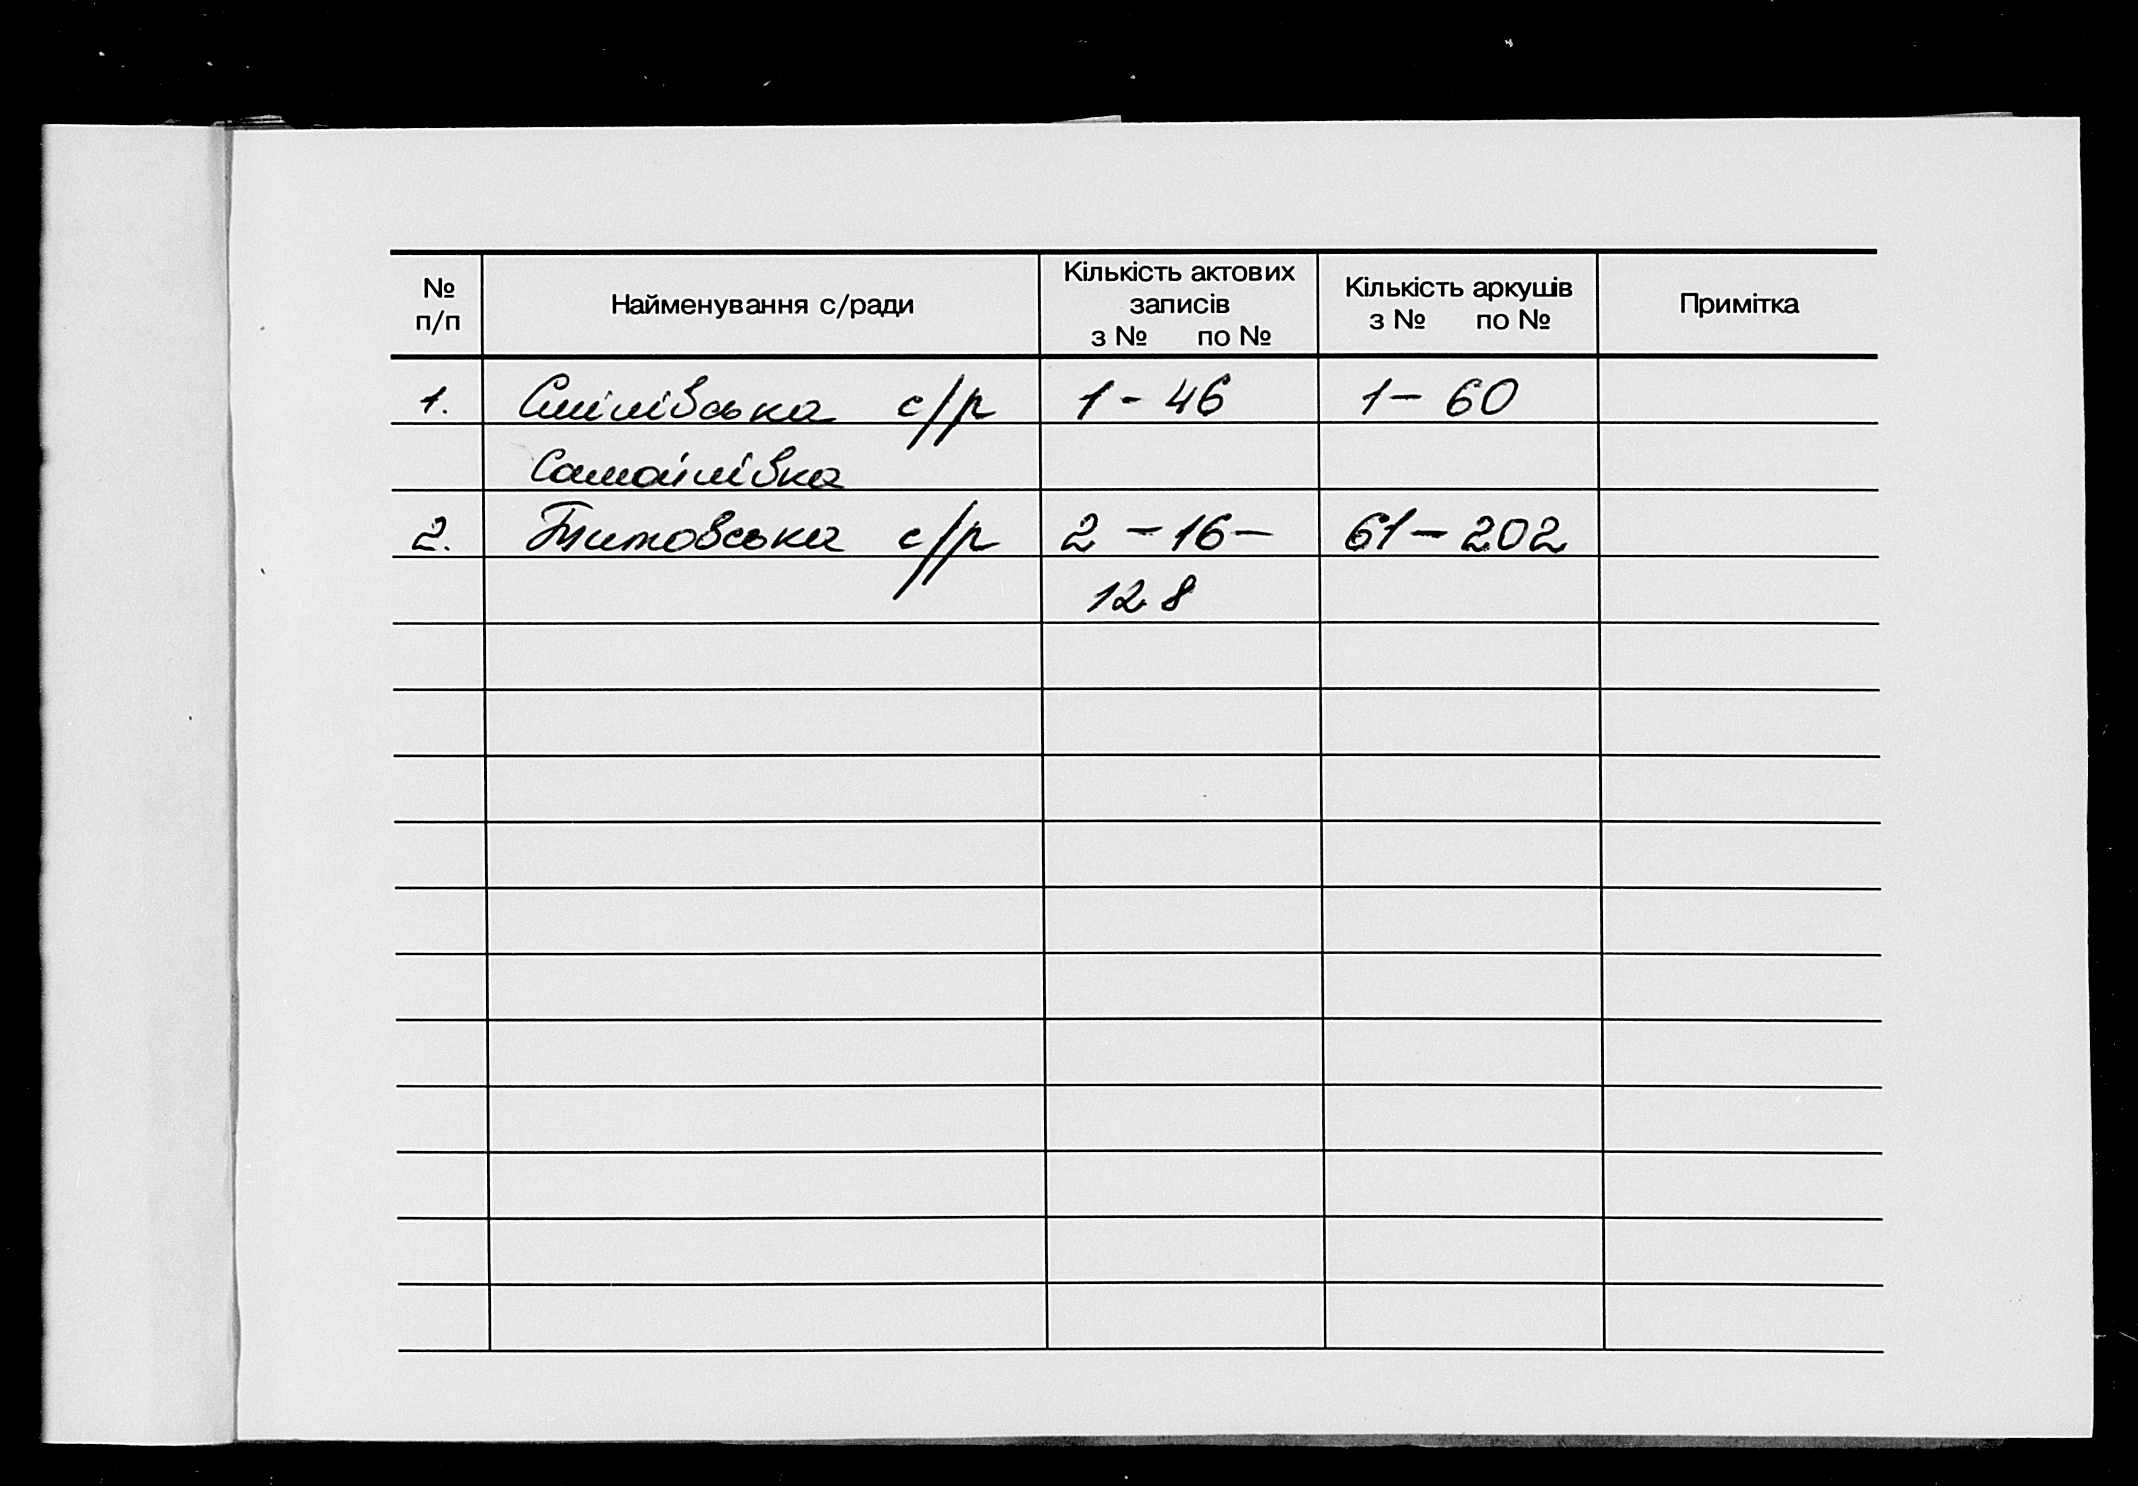 № п/п Найменування с/ради Кількість актових записів з № по № Кількість аркушів з № по № Примітка
1. Смілівська с/р 1 - 46 1 - 60
Самойлівка
2. Титовська с/р 2 - 16 - 61 - 202
128